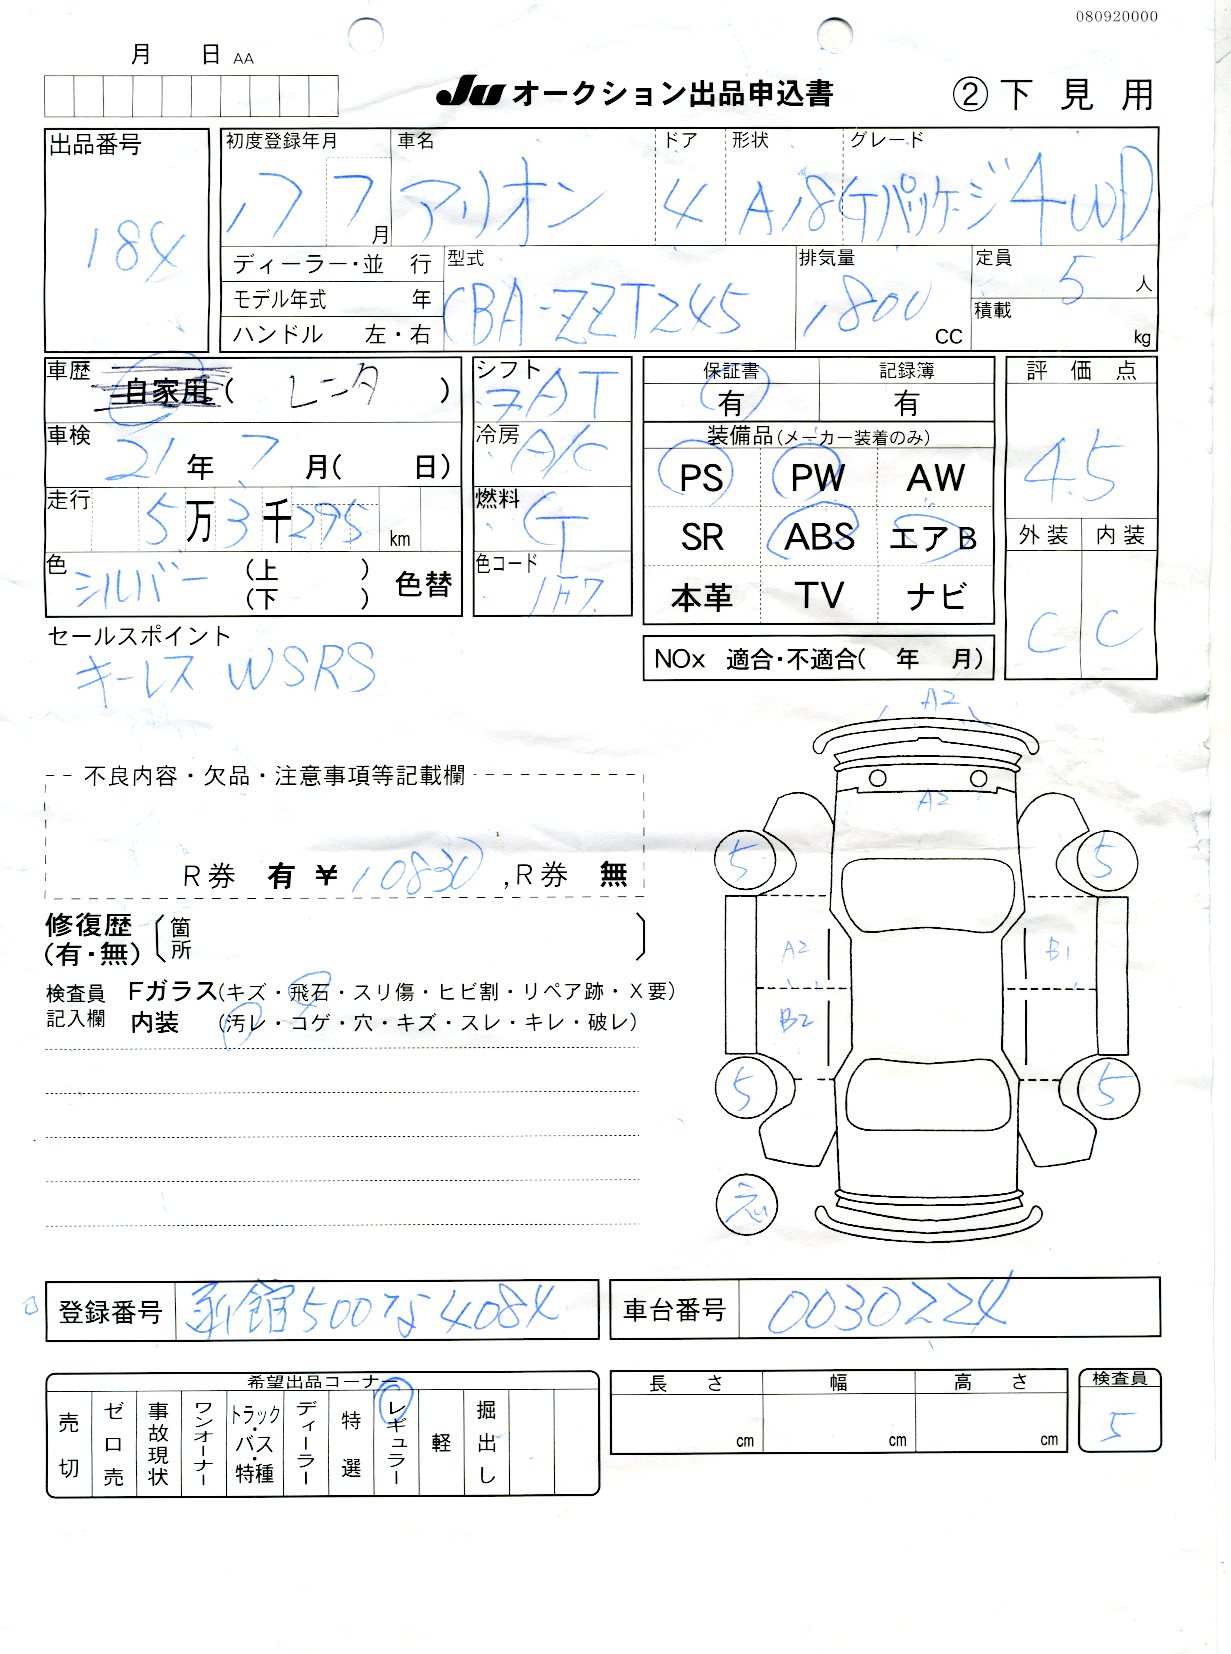 080920000
月 日 AA
JU オークション出品申込書 ②下見用
出品番号 184
初度登録年月 17 7月
車名 アリオン
ドア 4
形状 グレード A18 Gパッケージ 4WD
ディーラー・並 行
モデル年式 年
ハンドル 左・右
型式 CBA-ZZT245
排気量 1800 CC
定員 5 人
積載 kg
車歴 自家用( レンタ )
車検 21年 7月( 日)
走行 5万3千295 km
色 シルバー (上 ) (下 ) 色替
シフト フAT
冷房 A/C
燃料 G
色コード 1F7
保証書 記録簿
有 有
装備品(メーカー装着のみ)
PS PW AW
SR ABS エアB
本革 TV ナビ
NOx 適合・不適合( 年 月)
評価点
4.5
外装 内装
C C
セールスポイント
キーレス WSRS
不良内容・欠品・注意事項等記載欄
R券 有 ¥10830 , R券 無
修復歴 (有・無) 箇所
検査員記入欄
Fガラス(キズ・飛石・スリ傷・ヒビ割・リペア跡・X要)
内装 (汚レ・コゲ・穴・キズ・スレ・キレ・破レ)
A2
A2
5 5
A2 B1
B2
5 5
応
登録番号 函館500な4084
車台番号 0030224
希望出品コーナー
売切 ゼロ売 事故現状 ワンオーナー トラック・バス・特種 ディーラー 特選 レギュラー 軽 掘出し
長さ 幅 高さ
cm cm cm
検査員
5